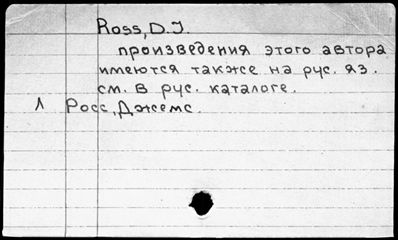 Ross, D.J.
произведения этого автора
имеются также на рус. яз.
см. в рус. каталоге.
Л Росс, Джемс.